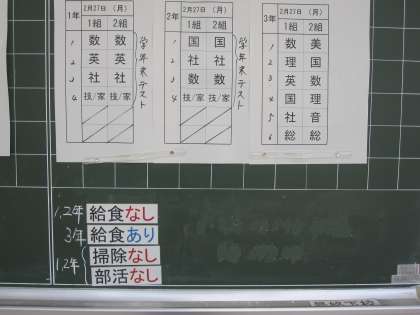 1年 2月27日 (月)
1組 2組
1 数 数
2 英 英
3 社 社
4 技/家 技/家
学年末テスト
2年 2月27日 (月)
1組 2組
1 国 国
2 社 社
3 数 数
4 技/家 技/家
学年末テスト
3年 2月27日 (月)
1組 2組
1 数 美
2 理 国
3 英 数
4 国 理
5 社 音
6 総 総
1,2年 給食なし
3年 給食あり
1,2年 掃除なし
部活なし